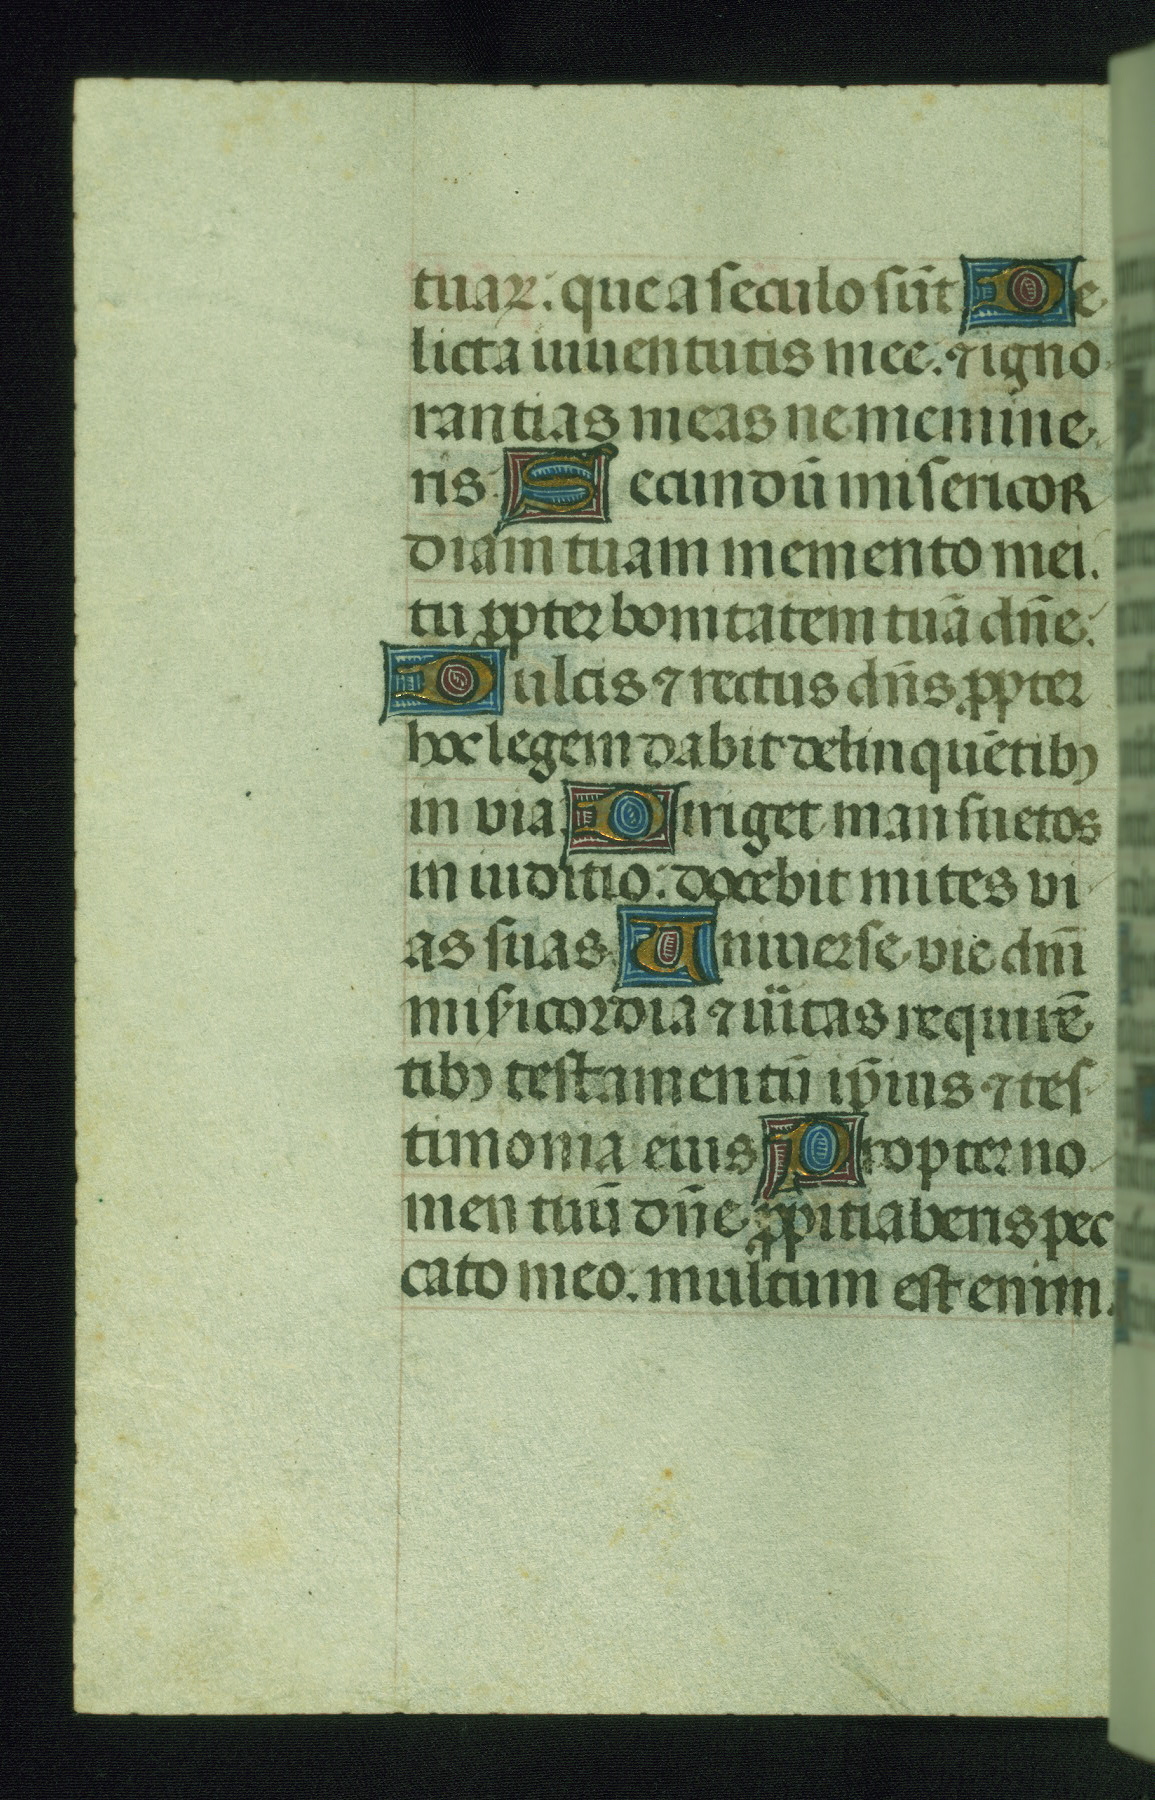 tuaꝝ: que a seculo sūt De
licta iuuentutis mee. ⁊ igno
rantias meas ne memine
ris. Secundū misericor
diam tuam memento mei.
tu ꝓpter bonitatem tuā dn̄e:
Dulcis ⁊ rectus dn̄s ꝓpter
hoc legem dabit delinquētibꝫ
in via. Diriget mansuetos
in iuditio: docebit mites vi
as suas. Uniuerse vie dnī
mis̄icordia ⁊ ūitas requirē
tibꝫ testamentū ip̄ius ⁊ tes
timonia eius Propter no
men tuū dn̄e ꝓpitiaberis pec
cato meo: multum est enim.